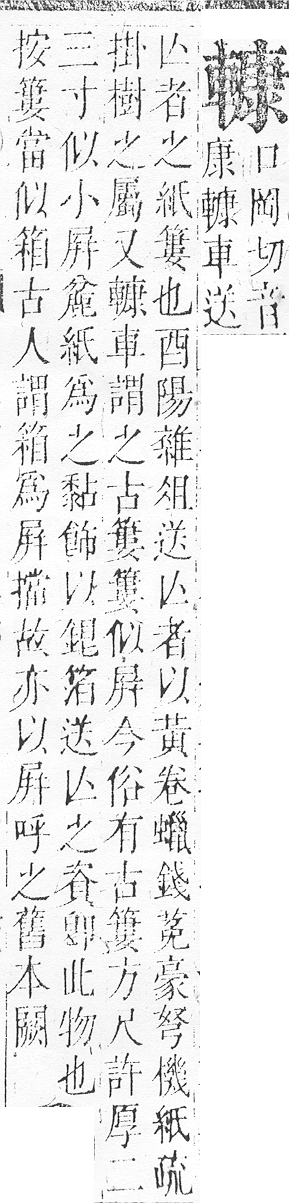 𨎍口岡切音
康𨎍車送
亾者之紙簍也酉陽雜俎送亾者以黃卷蠟錢菟豪弩機紙疏
掛樹之屬又𨎍車謂之古簍簍似屏今俗有古簍方尺許厚二
三寸似小屏麄紙爲之黏飾以錕箔送亾之賫即此物也
按簍當似箱古人謂箱爲屏擋故亦以屏呼之舊本闕